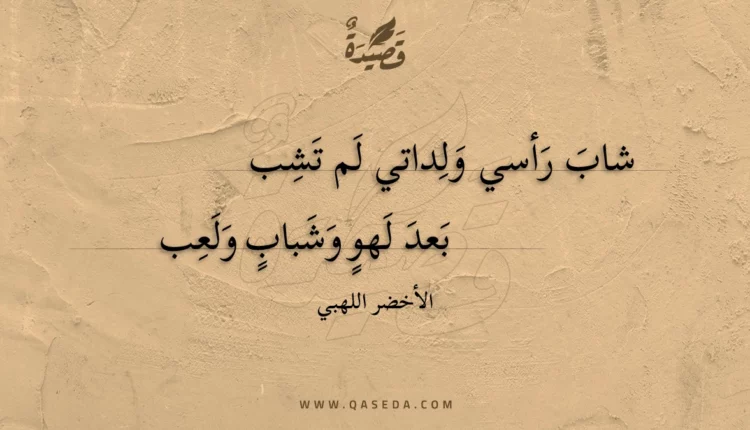 قَصِيْدَةٌ
شابَ رَأسي وَلِداتي لَم تَشِب
بَعدَ لَهوٍ وَشَبابٍ وَلَعِب
الأخضر اللهبي
WWW.QASEDA.COM